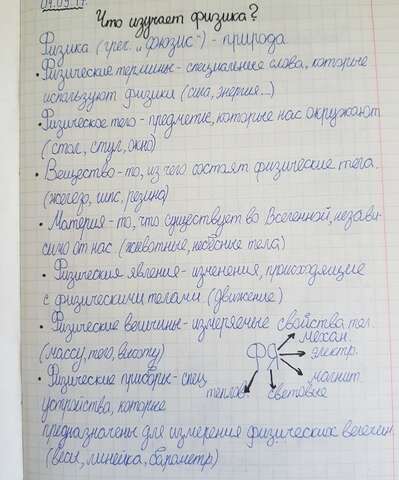 Что изучает физика?
Физика (грек. „фюзис“) - природа
• Физические термины - специальные слова, которые
используют физики (сила, энергия...)
• Физическое тело - предметы, которые нас окружают
(стол, стул, окно)
• Вещество - то, из чего состоят физические тела.
(железо, гипс, резина)
• Материя - то, что существует во Вселенной, незави-
симо от нас (животные, небесные тела)
• Физические явления - изменения, происходящие
с физическими телами (движение)
• Физические величины - измеряемые свойства тел.
(массу, тело, высоту)
ФЯ
механ.
электр.
магнит.
световые
теплов.
• Физические приборы - спец.
устройства, которые
предназначены для измерения физических величин
(весы, линейка, барометр)